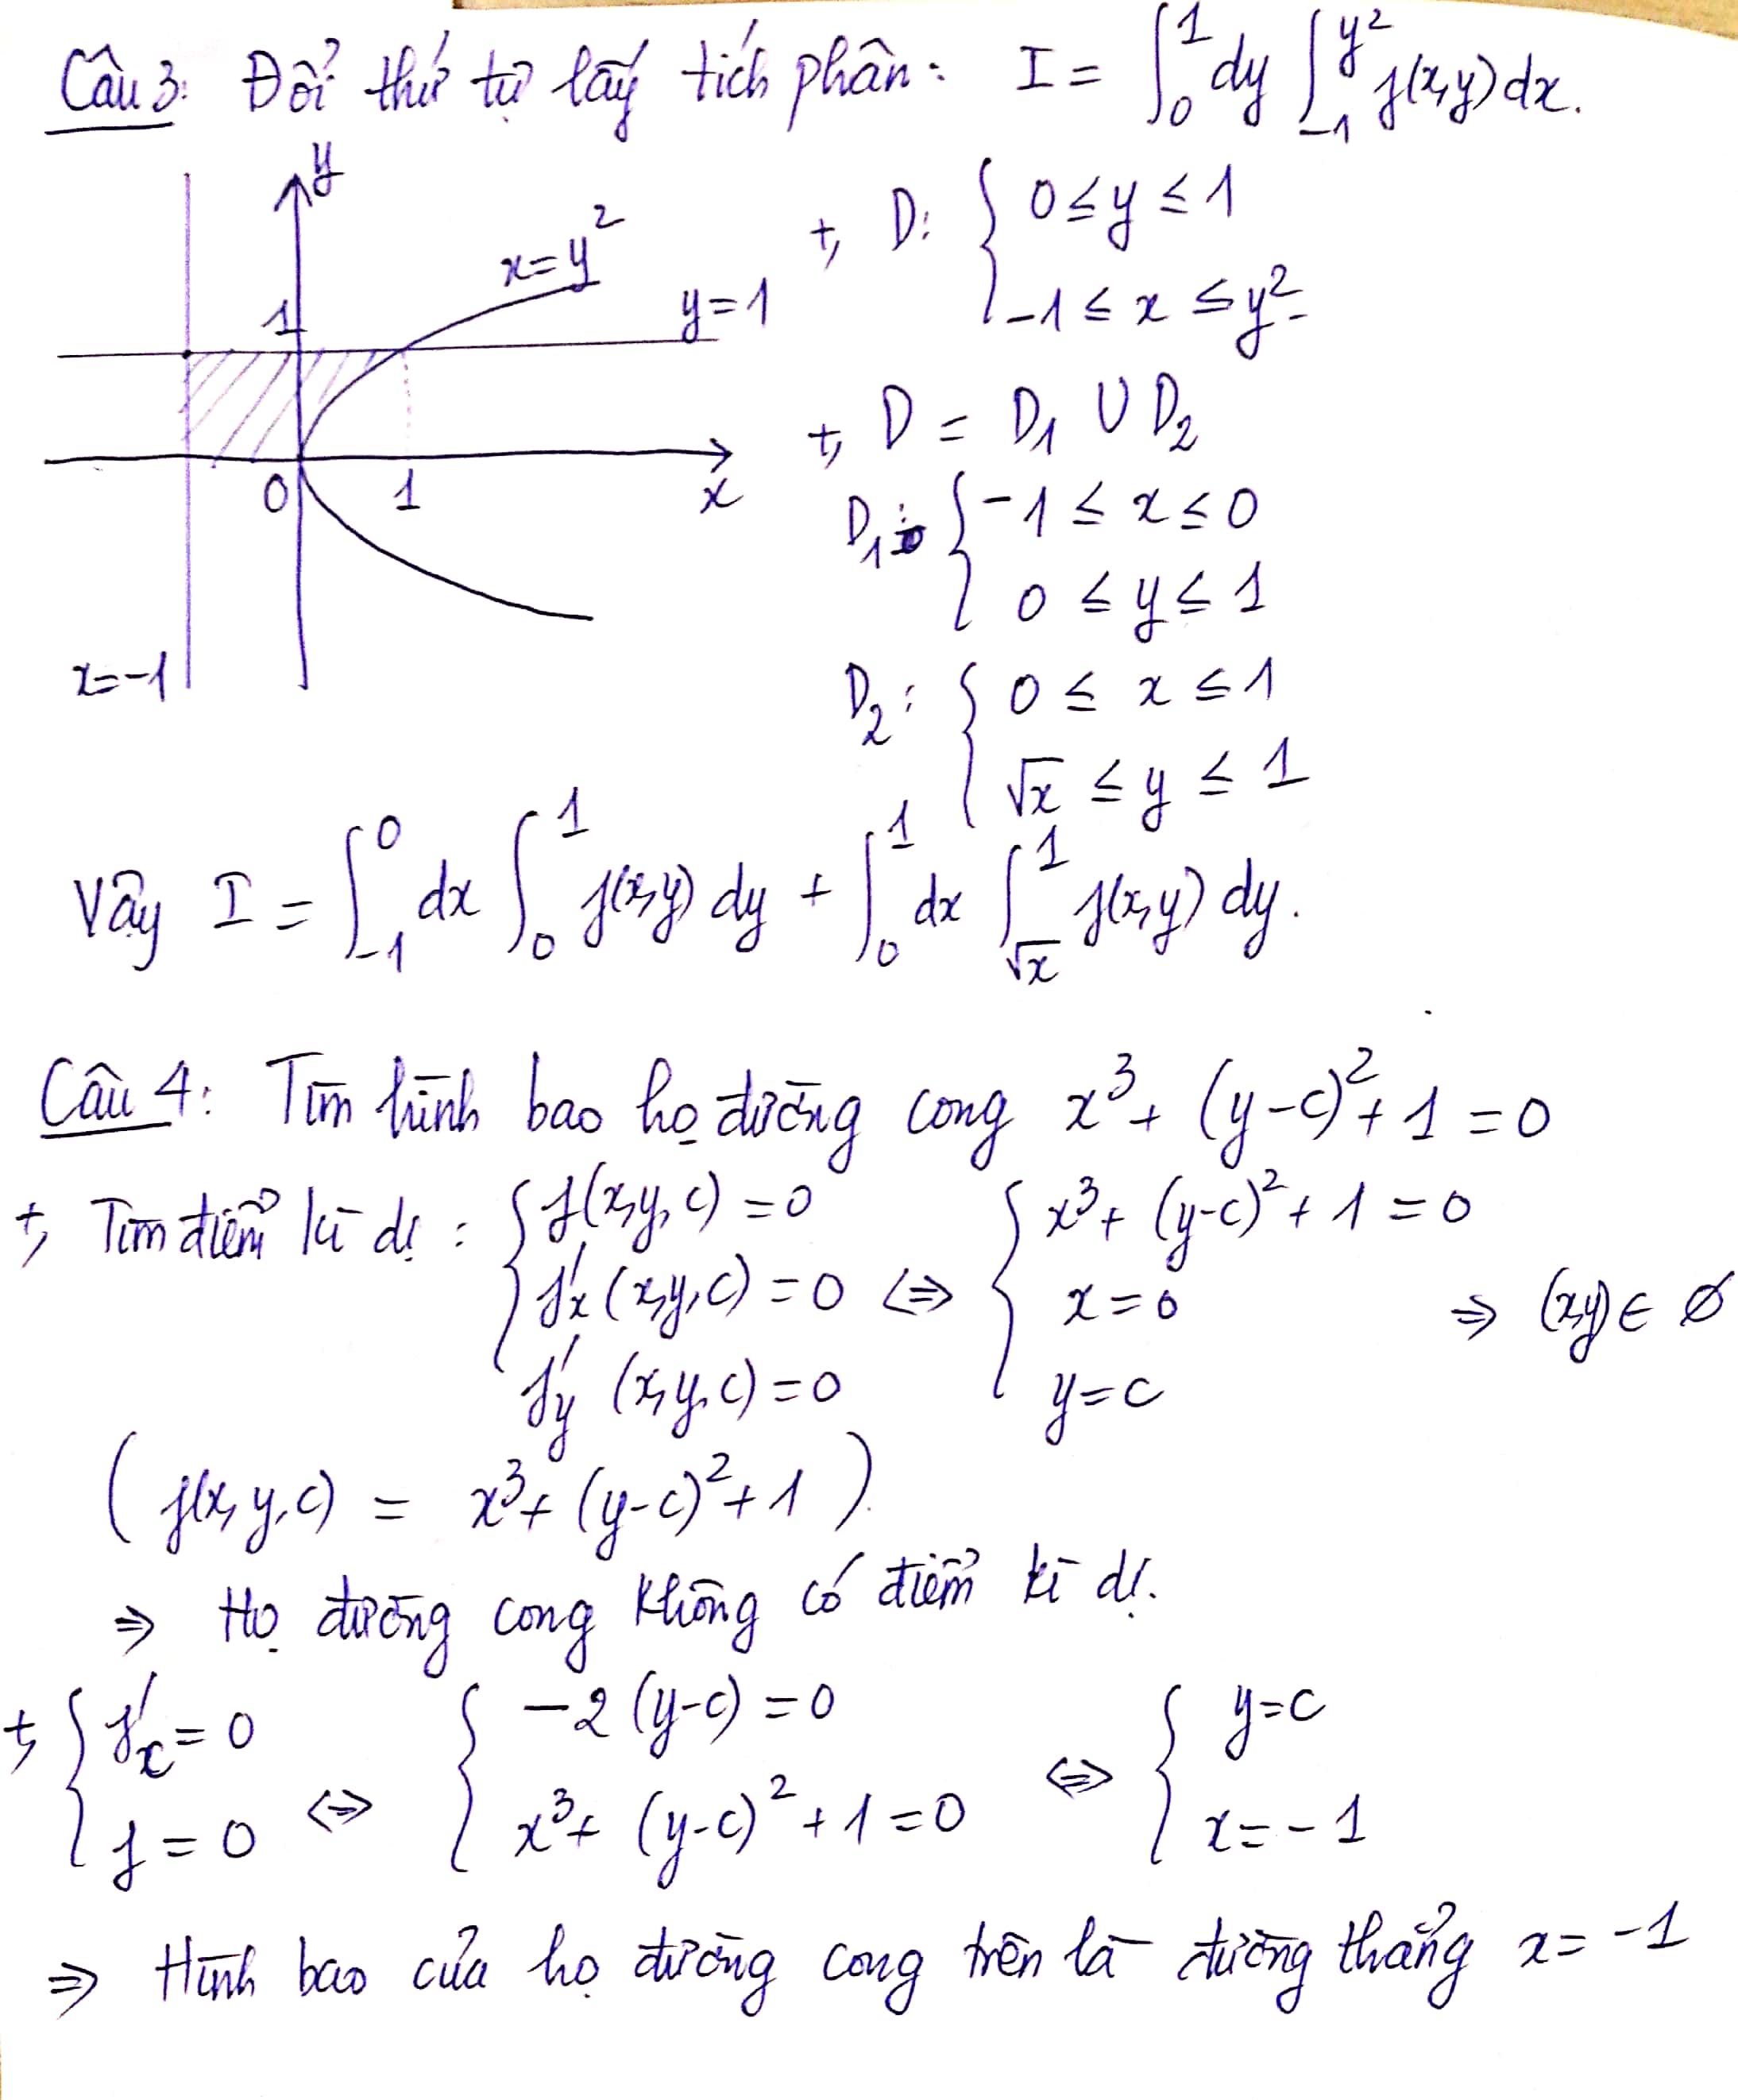 Câu 3: Đổi thứ tự lấy tích phân: I = ∫₀¹ dy ∫₋₁^{y²} f(x,y) dx.
y
x = y²
y = 1
1
0
1
x
x = -1
+, D: { 0 ≤ y ≤ 1
-1 ≤ x ≤ y²
+, D = D₁ ∪ D₂
D₁: { -1 ≤ x ≤ 0
0 ≤ y ≤ 1
D₂: { 0 ≤ x ≤ 1
√x ≤ y ≤ 1
Vậy I = ∫₋₁⁰ dx ∫₀¹ f(x,y) dy + ∫₀¹ dx ∫_{√x}¹ f(x,y) dy.
Câu 4: Tìm hình bao họ đường cong x³ + (y-c)² + 1 = 0
+, Tìm điểm kì dị: { f(x,y,c) = 0 { x³ + (y-c)² + 1 = 0
f'x (x,y,c) = 0 ⇔ x = 0 ⇒ (x,y) ∈ ∅
f'y (x,y,c) = 0 y = c
( f(x,y,c) = x³ + (y-c)² + 1 ).
⇒ Họ đường cong không có điểm kì dị.
+, { f'c = 0 ⇔ { -2(y-c) = 0 ⇔ { y = c
f = 0 x³ + (y-c)² + 1 = 0 x = -1
⇒ Hình bao của họ đường cong trên là đường thẳng x = -1